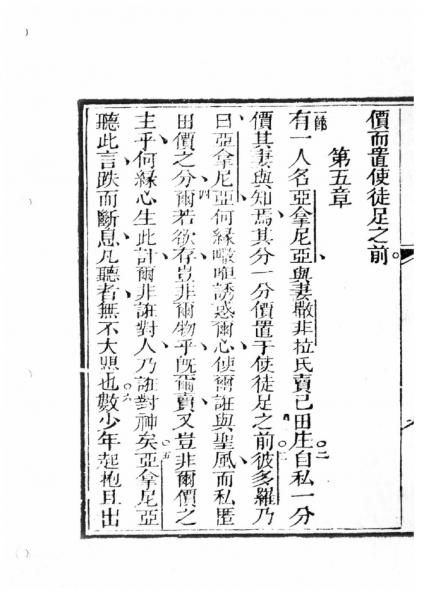 價而置使徒足之前。
第五章
一節有一人名亞拿尼亞與妻撒非拉氏賣己田庄。二自私一分
價其妻與知焉其分一分價置于使徒足之前。三彼多羅乃
曰亞拿尼亞何緣誘惑爾心使爾誑與聖風而私匿
田價之分四爾若欲存豈非爾物乎旣爾賣又豈非爾價之
主乎何緣心生此計爾非誑對人乃誑對神矣。五亞拿尼亞
聽此言跌而斷息凡聽者無不大也。六數少年起抱且出